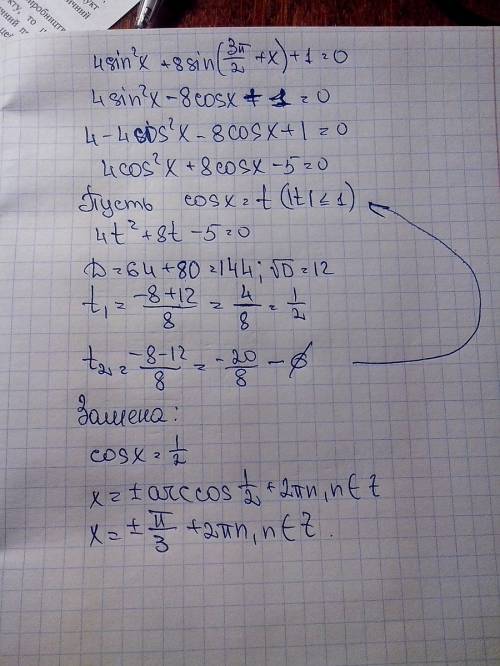 4sin²x + 8sin(3π/2 + x) + 1 = 0
4sin²x - 8cosx + 1 = 0
4 - 4cos²x - 8cosx + 1 = 0
4cos²x + 8cosx - 5 = 0
Пусть cosx = t (|t| ≤ 1)
4t² + 8t - 5 = 0
D = 64 + 80 = 144; √D = 12
t₁ = (-8+12)/8 = 4/8 = 1/2
t₂ = (-8-12)/8 = -20/8 - ∅
Замена:
cosx = 1/2
x = ± arccos 1/2 + 2πn, n ∈ Z
x = ± π/3 + 2πn, n ∈ Z.